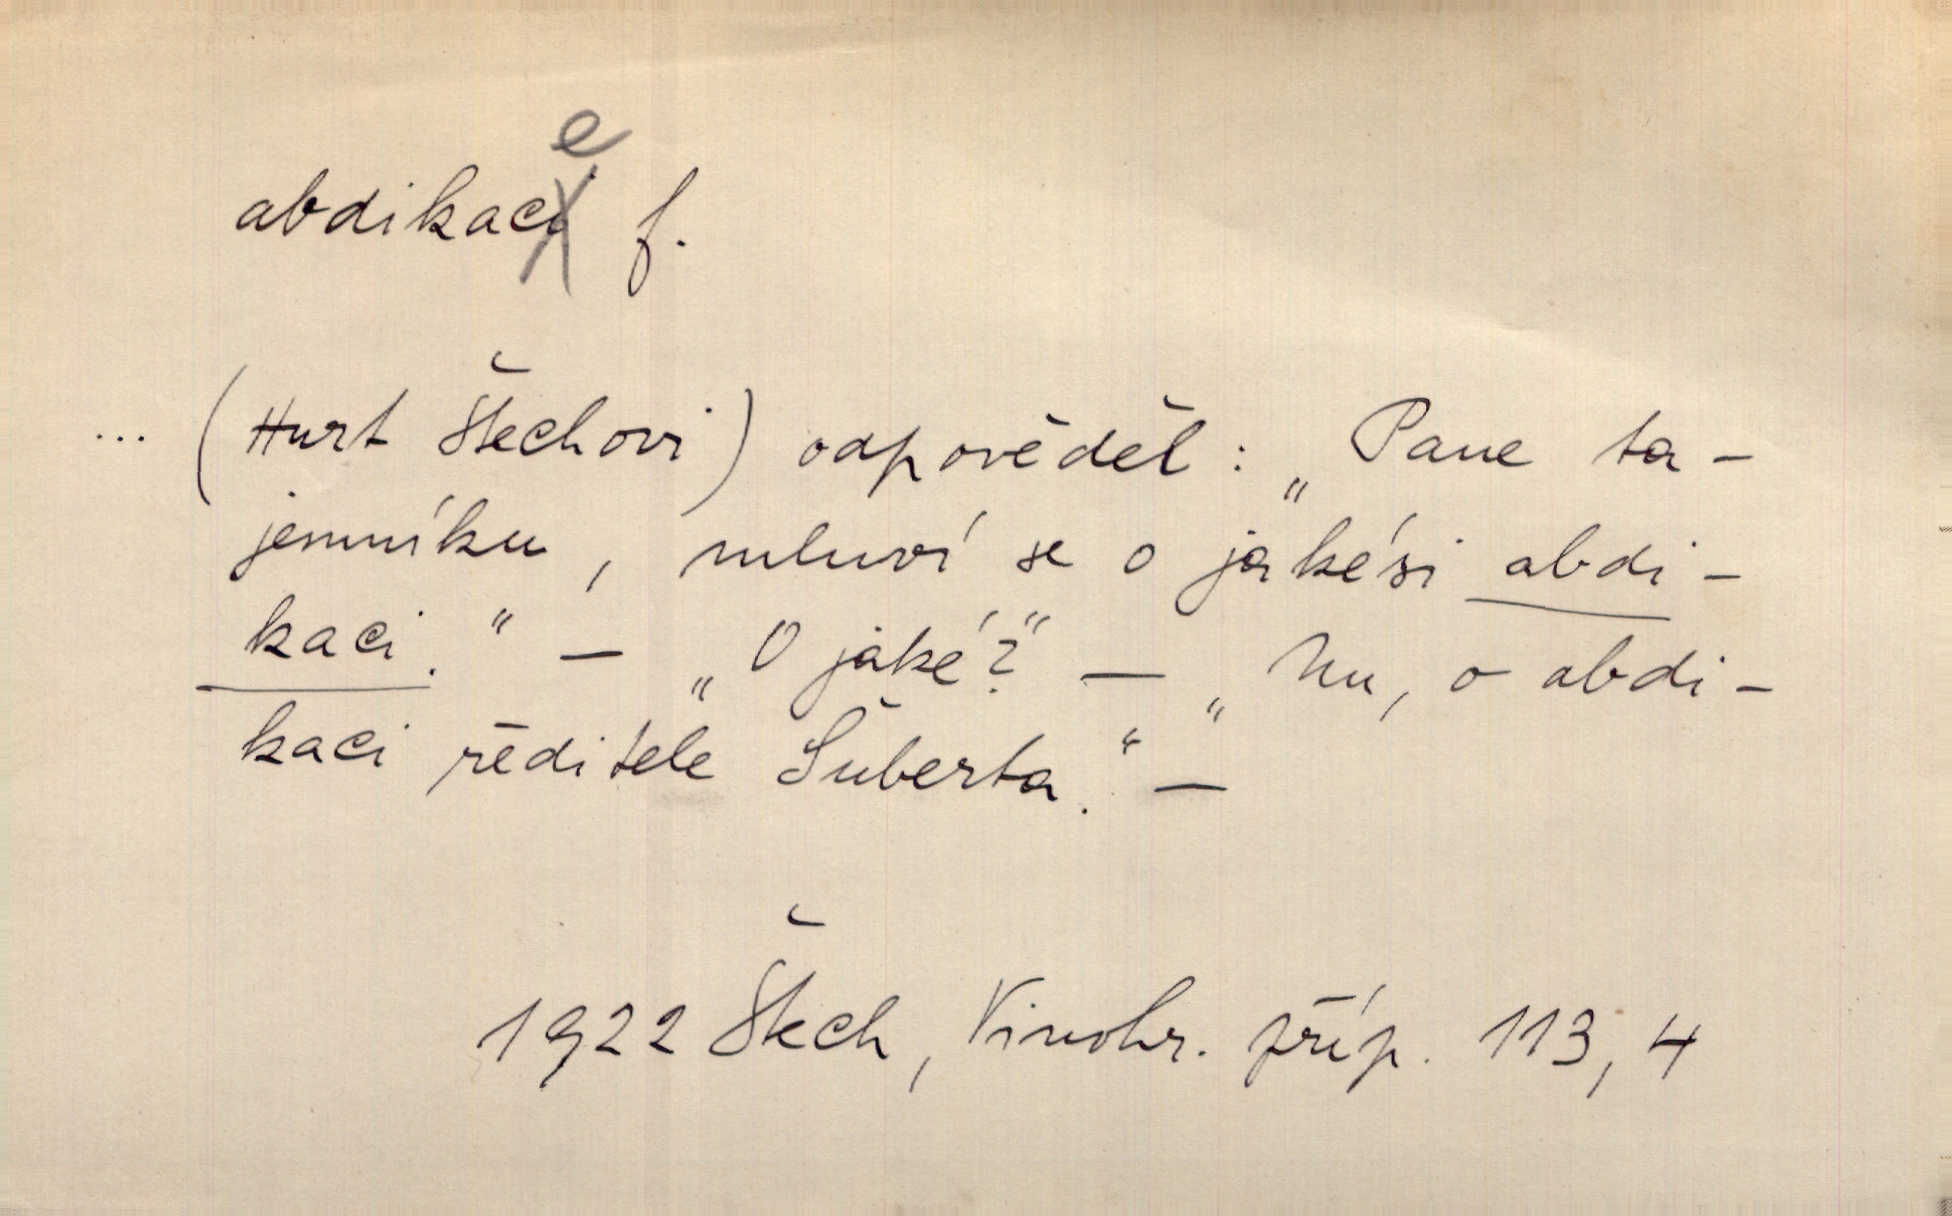 abdikace f.
... (Hurt Štechovi) odpověděl: „Pane ta-
jemníku, mluví se o jakési abdi-
kaci.“ — „O jaké?“ — „Nu, o abdi-
kaci ředitele Šuberta.“ —
1922 Štech, Vinohr. příp. 113, 4